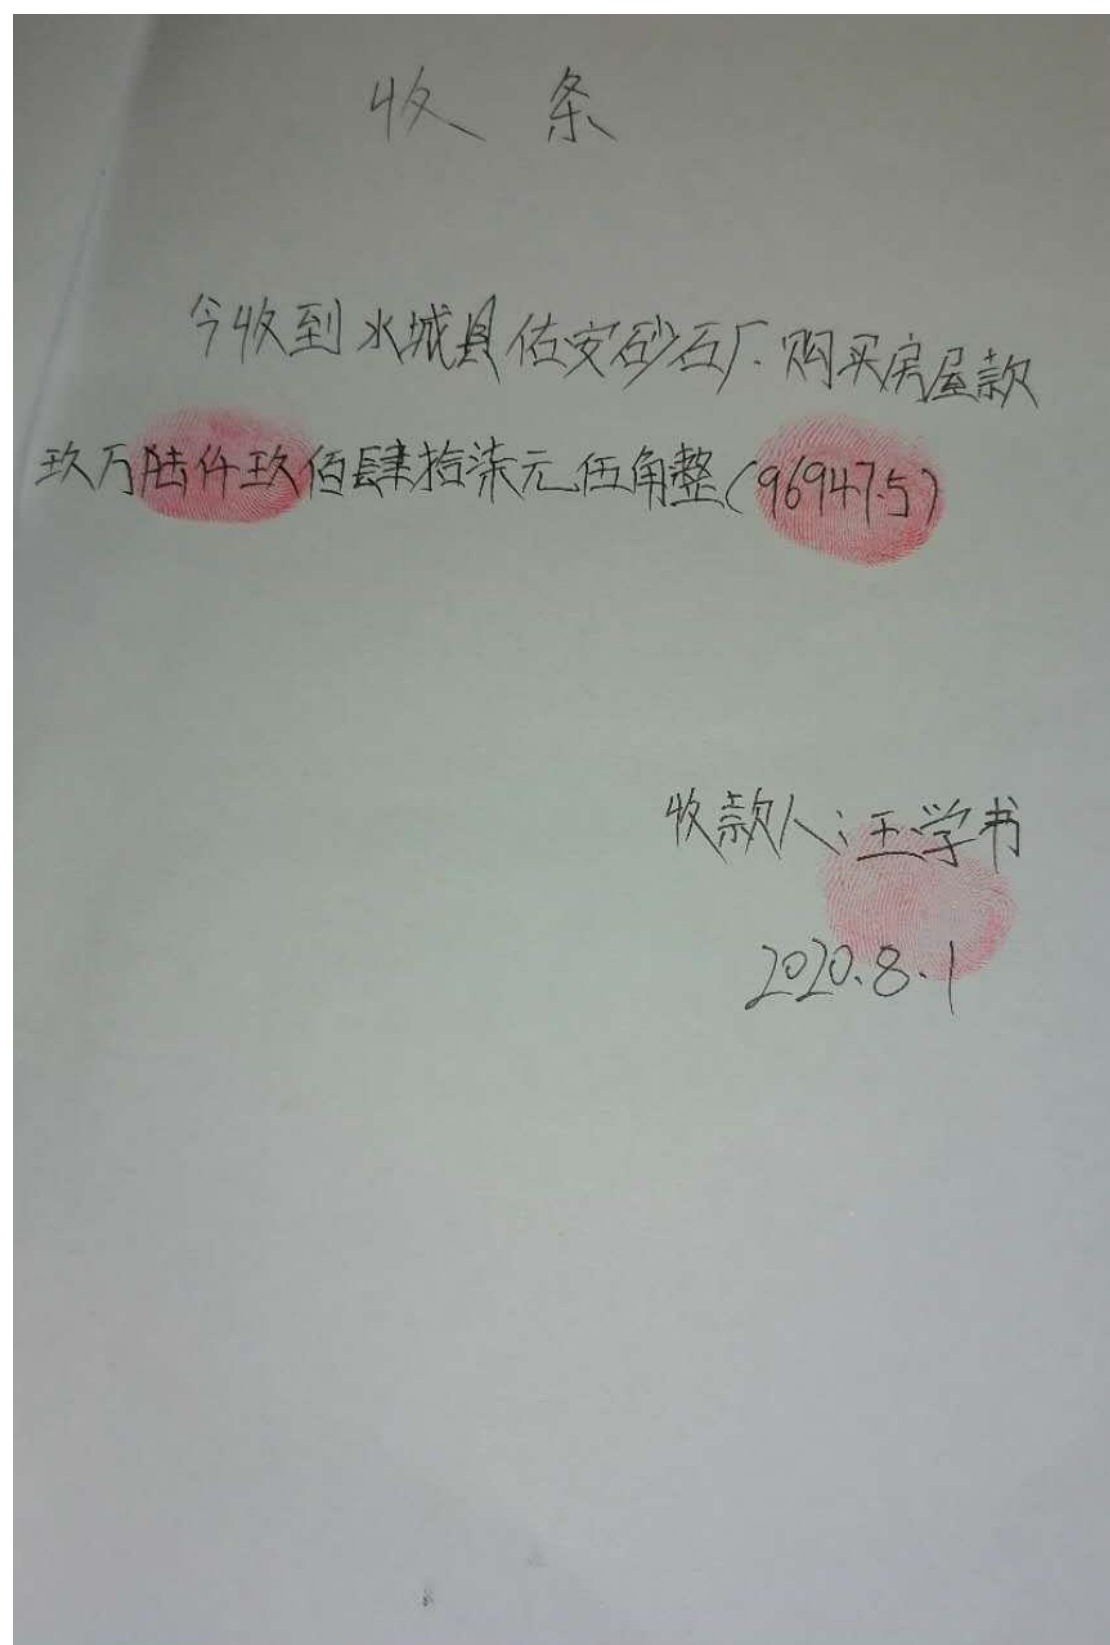 收 条
今收到水城县佑安砂石厂.购买房屋款
玖万陆仟玖佰肆拾柒元伍角整(96947.5)
收款人:王学书
2020.8.1